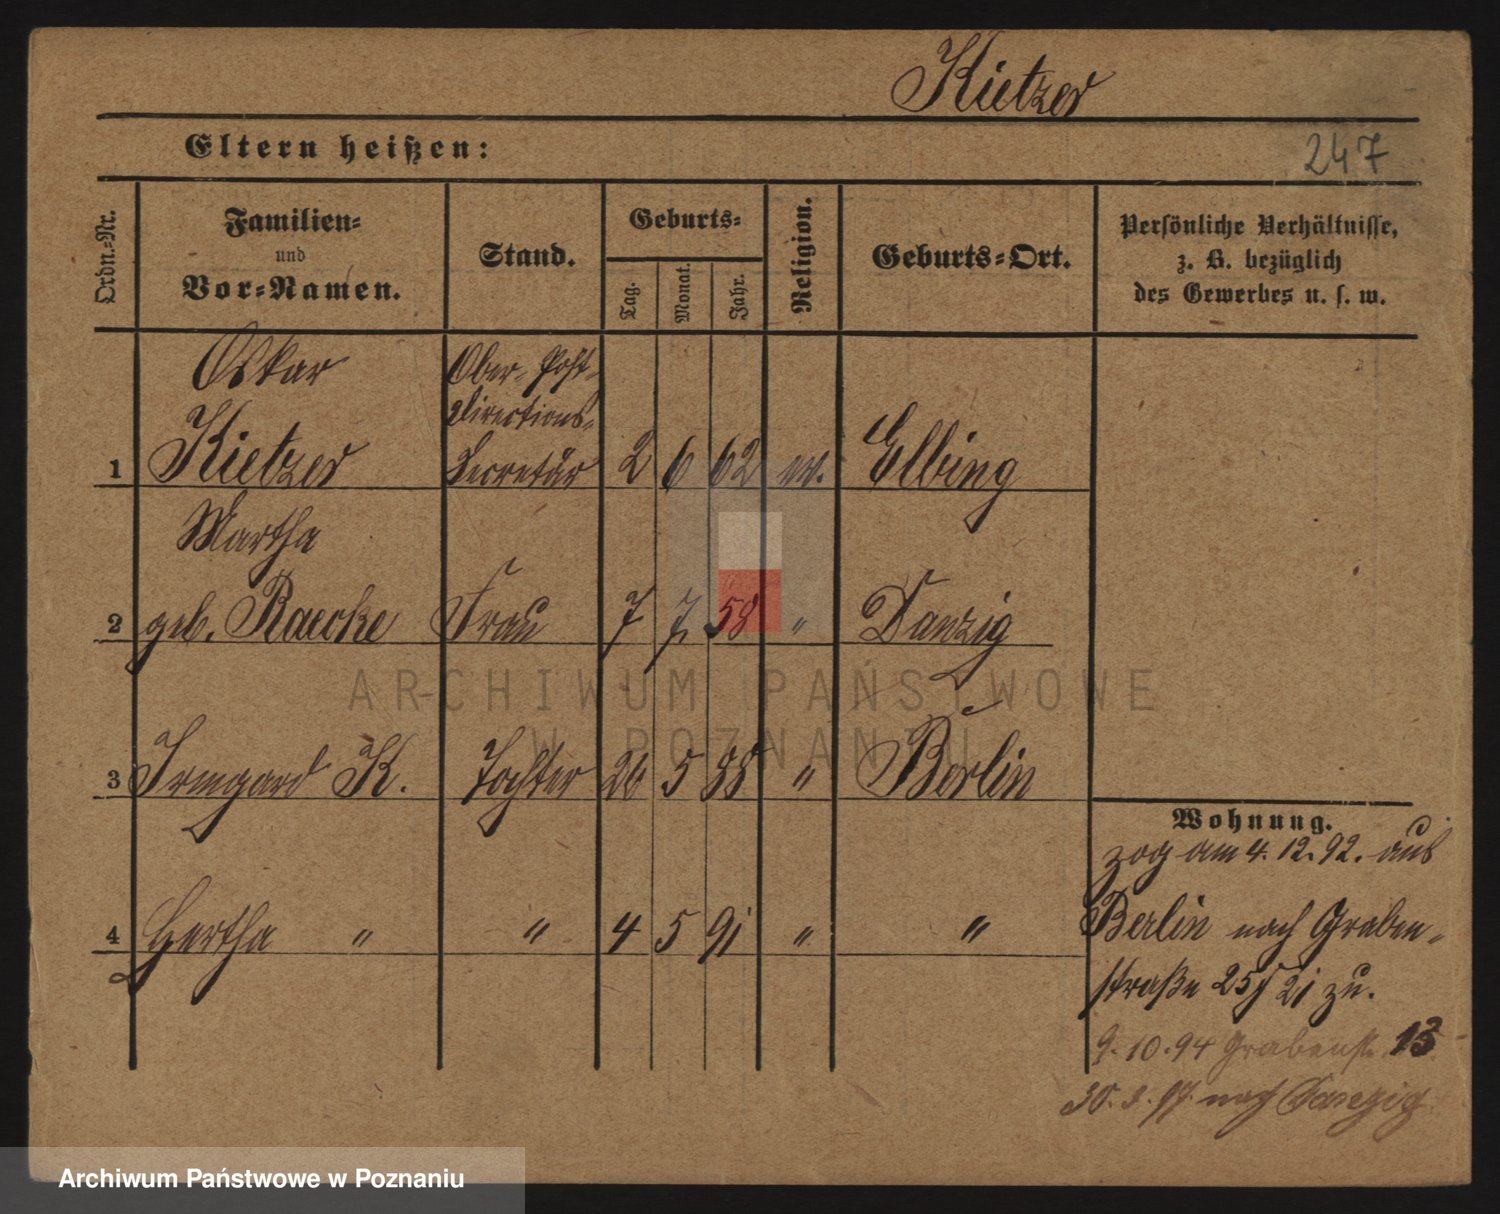 Kietzer
247
Eltern heißen:
Ordn.-Nr.
Familien=
und
Vor=Namen.
Stand.
Geburts=
Tag.
Monat.
Jahr.
Religion.
Geburts=Ort.
Persönliche Verhältnisse,
z. B. bezüglich
des Gewerbes u. s. w.
Oskar Ober-Post-
Directions-
1 Kietzer Secretär 2 6 62 ev. Elbing
Martha
2 geb. Raecke Frau 7 7 58 " Danzig
3 Irmgard K. Tochter 26 5 88 " Berlin
4 Hertha " " 4 5 91 " "
Wohnung.
zog am 4. 12. 92. aus
Berlin nach Graben-
straße 25 / 21 zu.
9. 10. 94 Grabenstr. 13
30. 3. 97. nach Danzig
ARCHIWUM PAŃSTWOWE
W POZNANIU
Archiwum Państwowe w Poznaniu